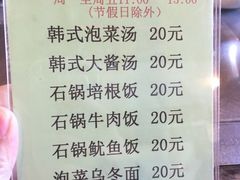 周一至周五11:00-13:00
(节假日除外)
韩式泡菜汤 20元
韩式大酱汤 20元
石锅培根饭 20元
石锅牛肉饭 20元
石锅鱿鱼饭 20元
泡菜乌冬面 20元